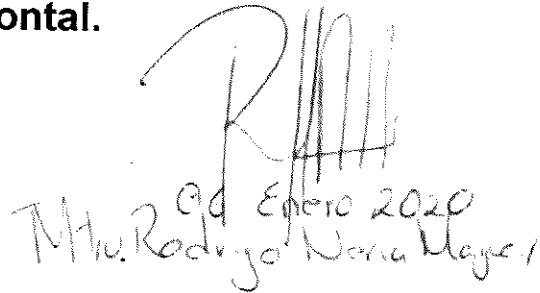 ontal.
Enero 2020
Mtro. Rodrigo Neria